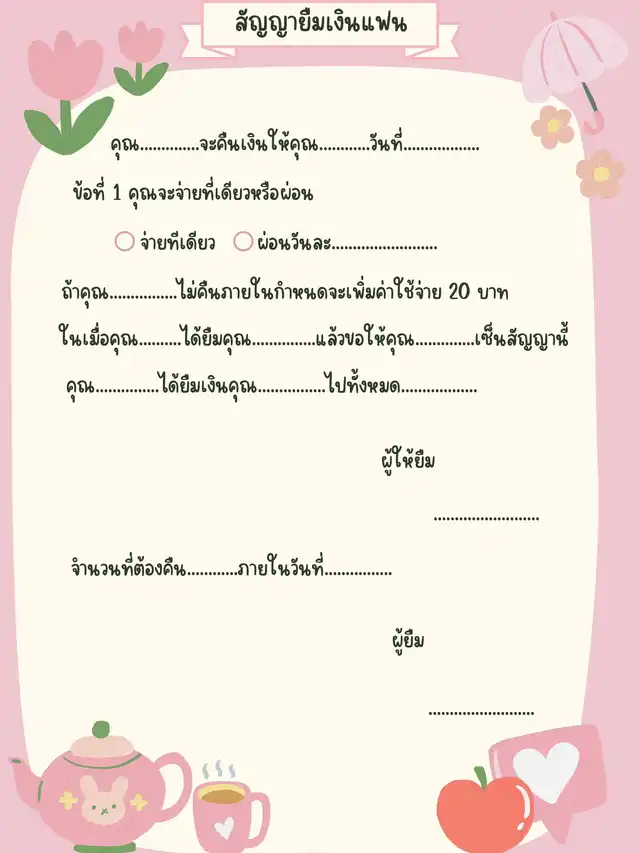 สัญญายืมเงินแฟน
คุณ..............จะคืนเงินให้คุณ............วันที่..................
ข้อที่ 1 คุณจะจ่ายที่เดียวหรือผ่อน
จ่ายทีเดียว ผ่อนวันละ.........................
ถ้าคุณ................ไม่คืนภายในกำหนดจะเพิ่มค่าใช้จ่าย 20 บาท
ในเมื่อคุณ..........ได้ยืมคุณ...............แล้วขอให้คุณ..............เซ็นสัญญานี้
คุณ...............ได้ยืมเงินคุณ................ไปทั้งหมด..................
ผู้ให้ยืม
.........................
จำนวนที่ต้องคืน............ภายในวันที่................
ผู้ยืม
.........................